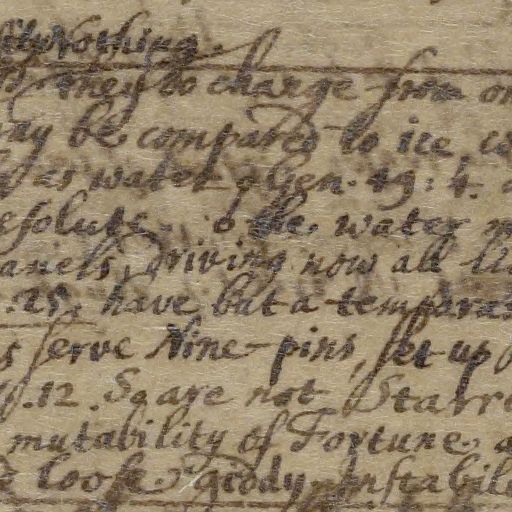 Nothing.
they do change from
may be compared to ice
as water Gen. 49: 4.
esolute. 6 the water
aniels, Driving now all
.25. have but a tempora
s serve Nine-pins, set up
.12. So are not Starr
mutability of Fortune.
loose giddy Instabil